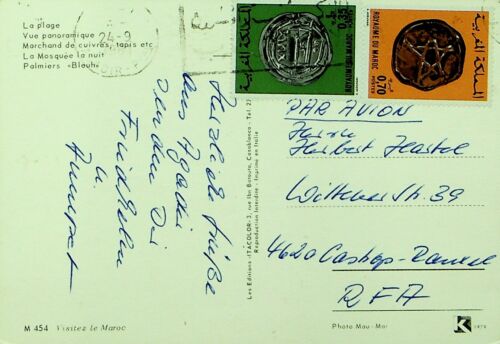 La plage
Vue panoramique
Marchand de cuivres, tapis etc
La Mosquée la nuit
Palmiers «Bleuh»
24-9
ROYAUME DU MAROC
0,65
المملكة المغربية
POSTES
ROYAUME DU MAROC
0,70
المملكة المغربية
POSTES
Herzliche Grüße
aus Agadir
senden Dir
Friedhelm
u.
PAR AVION
Herrn
Herbert Hastel
Str. 39
4620 Castrop-Rauxel
RFA
Les Editions «ITACOLOR» 3, rue Ibn Batouta, Casablanca - Tel. 27
Reproduction Interdite - Imprimé en Italie
M 454 Visitez le Maroc
Photo Mau-Mar
K